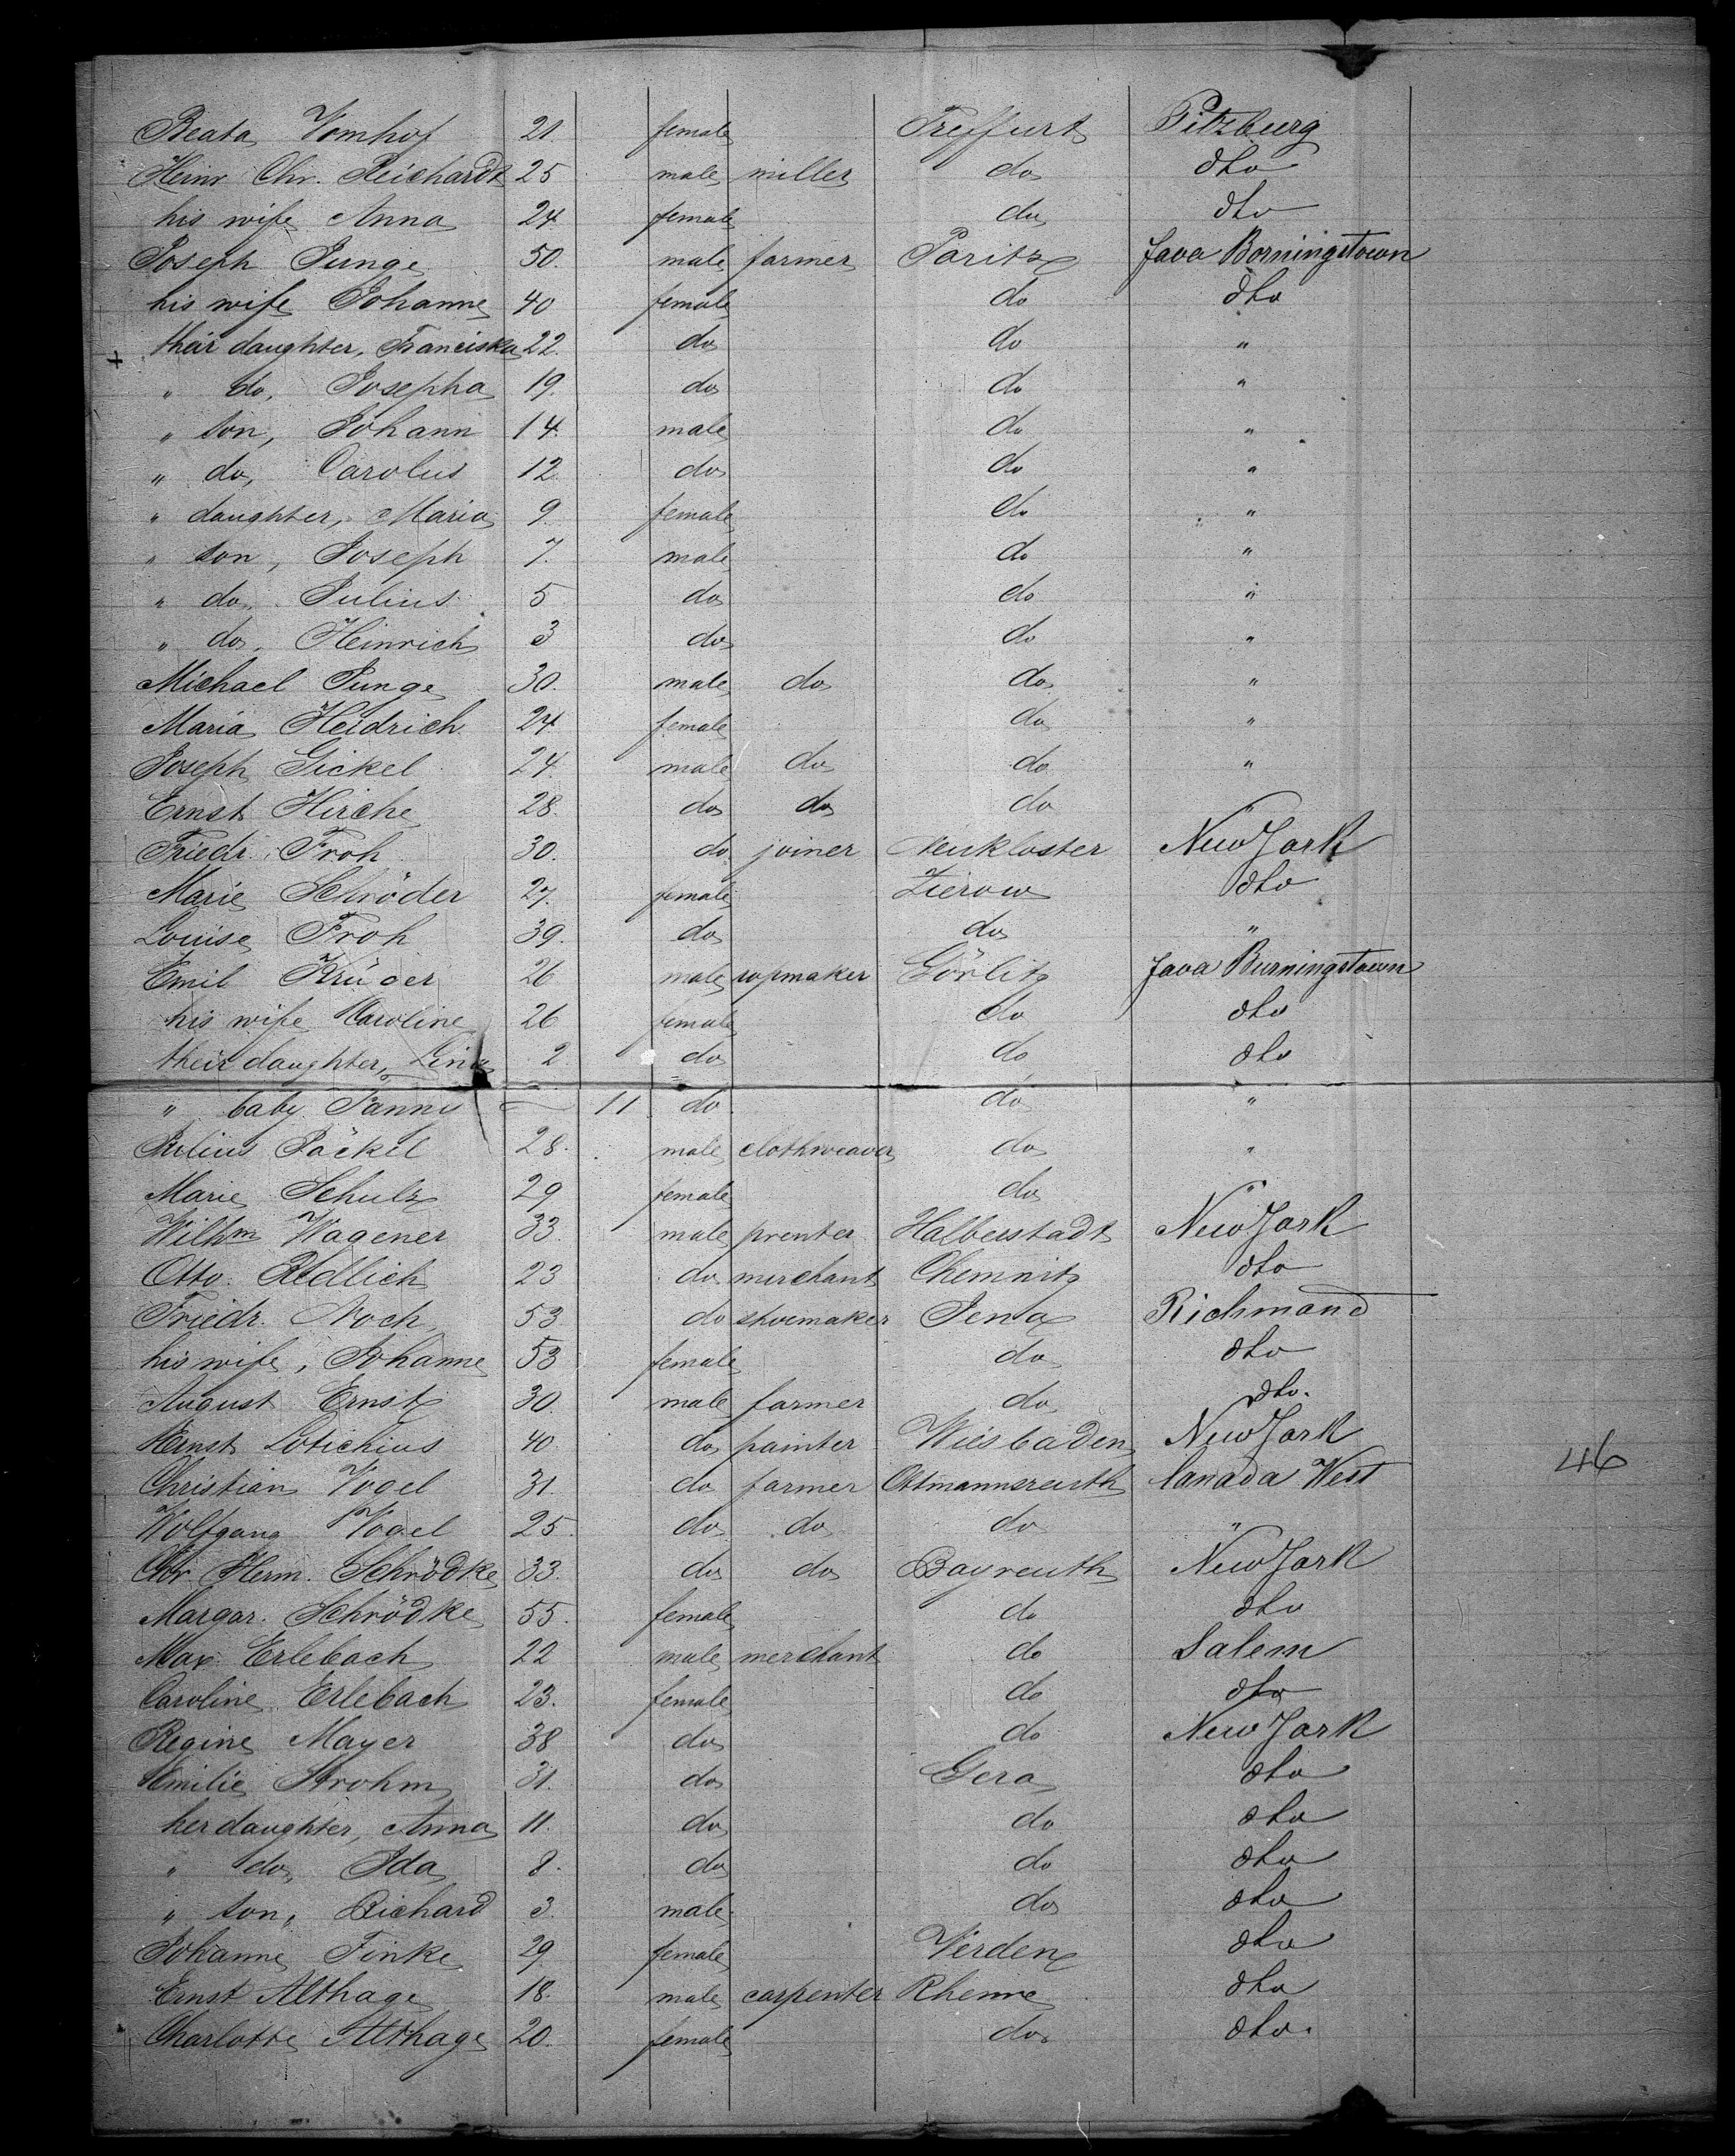 Beata Vomhof 21. female Treffurt Pitzburg
Heinr Chr. Reichardt 25 male miller do dto
his wife Anna 24 female do dto
Joseph Junge 50. male farmer Paritz Java Borningstown
his wife Johanne 40 female do dto
+ their daughter, Franciska 22. do do "
" do, Josepha 19. do do "
" son, Johann 14. male do "
" do, Carolus 12. do do "
" daughter, Maria 9. female do "
" son, Joseph 7. male do "
" do, Julius 5 do do "
" do, Heinrich 3 do do "
Michael Junge 30. male do do "
Maria Heidrich 24 female do "
Joseph Gickel 24. male do do "
Ernst Hirche 28. do do do "
Friedr. Froh 30. do joiner Neukloster New Jork
Marie Schröder 27. female Zierow dto
Louise Froh 39. do do "
Emil Krüger 26 male ropmaker Görlitz Java Burningstown
his wife Caroline 26 female do dto
their daughter, Lina 2 do do dto
" baby Fanny — 11 do do "
Julius Jäckel 28. male clothweaver do "
Marie Schulz 29 female do "
Wilhm Wagener 33. male prenter Halberstadt New Jork
Otto Redlich 23 do merchant Chemnitz dto
Friedr. Noch 53. do shoemaker Jena Richmond
his wife, Johanne 53 female do dto
August Ernst 30. male farmer do dto.
Ernst Lotichius 40 do painter Wiesbaden New Jork
Christian Vogel 31. do farmer Ottmannsreuth Canada West
46
Wolfgang Vogel 25. do do do "
Chr Herm. Schrödke 33. do do Bayreuth New Jork
Margar. Schrödke 55. female do dto
Max Erlebach 22 male merchant do Salem
Caroline Erlebach 23. female do dto
Regine Mayer 38 do do New Jork
Emilie Strohm 31. do Gera dto
her daughter, Anna 11. do do dto
" do, Ida 8. do do dto
" son, Richard 3. male do dto
Johanne Finke 29. female Verden dto
Ernst Althage 18. male carpenter Rheme dto
Charlotte Althage 20. female do dto.